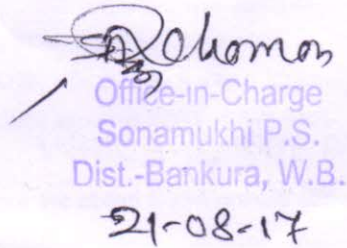 Office-in-Charge
Sonamukhi P.S.
Dist.-Bankura, W.B.
21-08-17